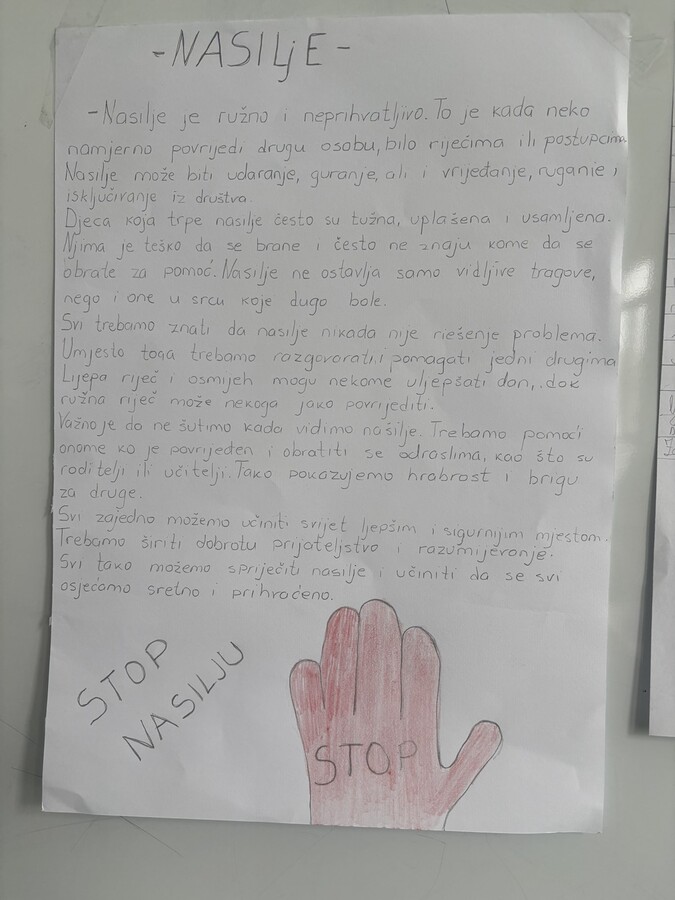 -NASILjE-
-Nasilje je ružno i neprihvatljivo. To je kada neko
namjerno povrijedi drugu osobu, bilo riječima ili postupcima
Nasilje može biti udaranje, guranje, ali i vrijeđanje, ruganje i
isključivanje iz društva.
Djeca koja trpe nasilje često su tužna, uplašena i usamljena.
Njima je teško da se brane i često ne znaju kome da se
obrate za pomoć. Nasilje ne ostavlja samo vidljive tragove,
nego i one u srcu koje dugo bole.
Svi trebamo znati da nasilje nikada nije riešenje problema.
Umjesto toga trebamo razgovorati i pomagati jedni drugima
Lijepa riječ i osmijeh mogu nekome uljepšati dan, dok
ružna riječ može nekoga jako povrijediti.
Važno je da ne šutimo kada vidimo nasilje. Trebamo pomoći
onome ko je povrijeđen i obratiti se odraslima, kao što su
roditelji ili učitelji. Tako pokazujemo hrabrost i brigu
za druge.
Svi zajedno možemo učiniti svijet ljepšim i sigurnijim mjestom.
Trebamo širiti dobrotu prijateljstvo i razumijevanje.
Svi tako možemo spriječiti nasilje i učiniti da se svi
osjećamo sretno i prihvaćeno.
STOP
NASILJU
STOP